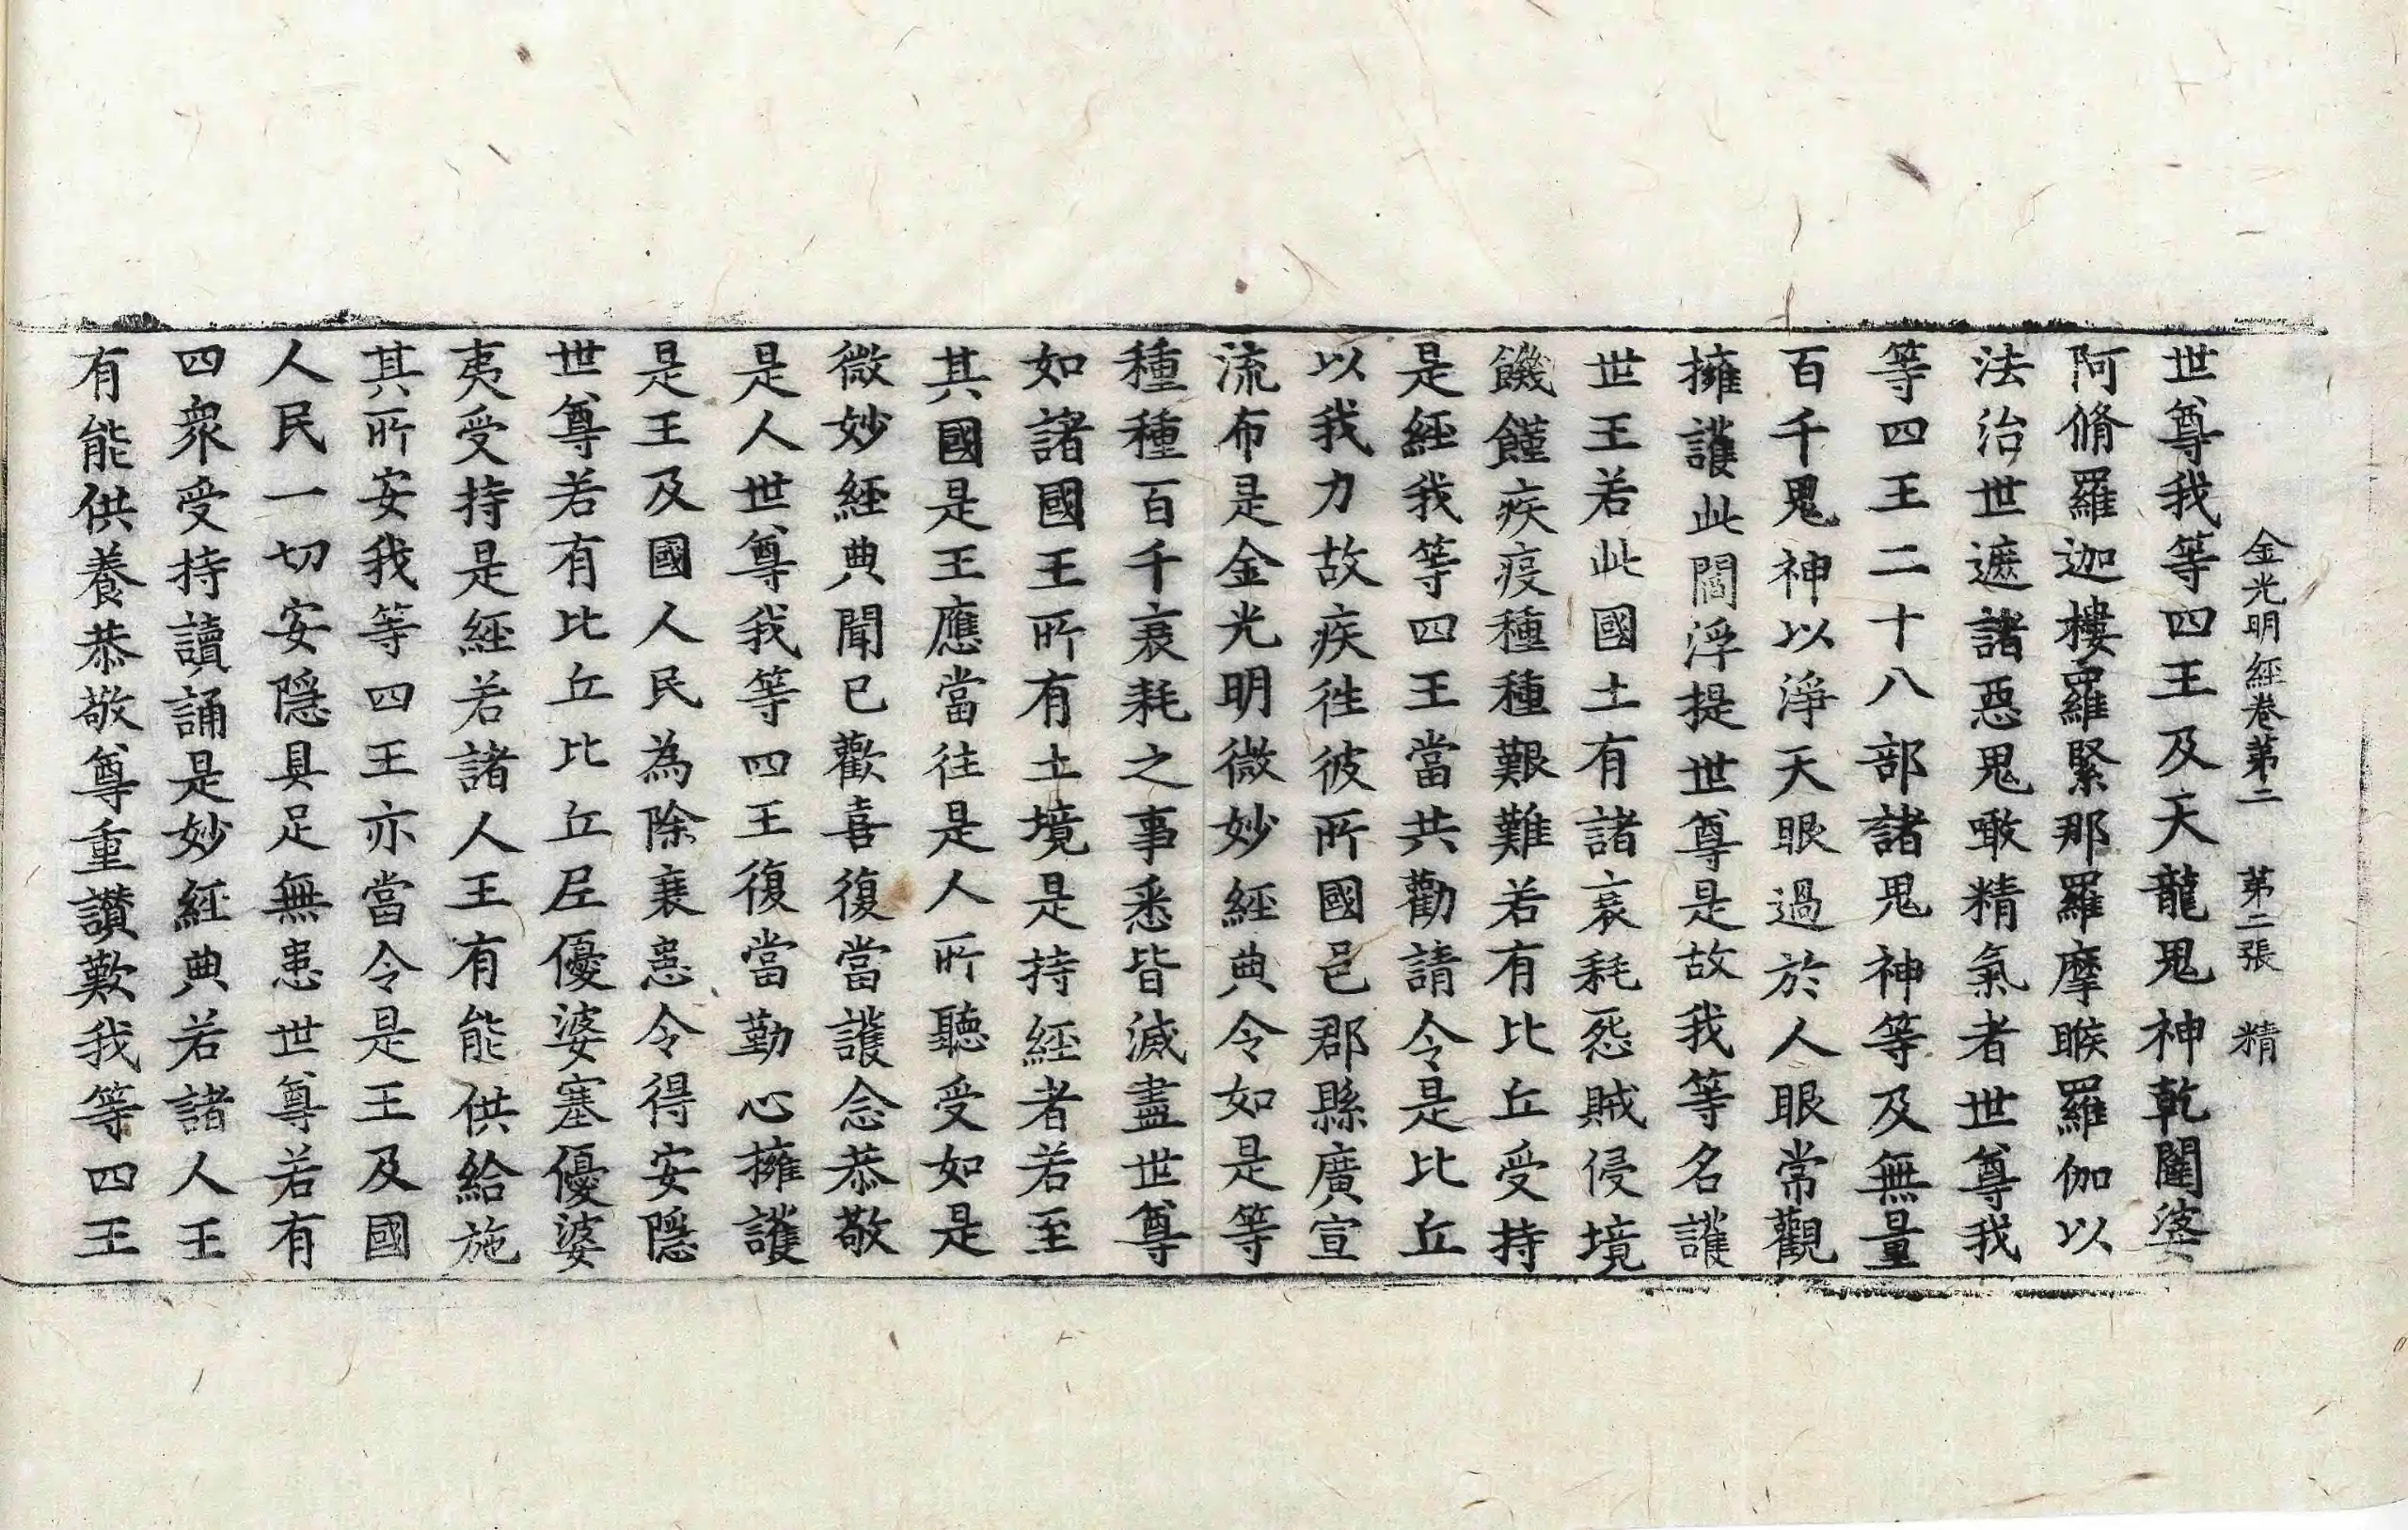 金光明經卷第二　第二張　精
世尊我等四王及天龍鬼神乾闥婆
阿脩羅迦樓羅緊那羅摩睺羅伽以
法治世遮諸惡鬼噉精氣者世尊我
等四王二十八部諸鬼神等及無量
百千鬼神以淨天眼過於人眼常觀
擁護此閻浮提世尊是故我等名護
世王若此國土有諸衰耗怨賊侵境
饑饉疾疫種種艱難若有比丘受持
是經我等四王當共勸請令是比丘
以我力故疾往彼所國邑郡縣廣宣
流布是金光明微妙經典令如是等
種種百千衰耗之事悉皆滅盡世尊
如諸國王所有土境是持經者若至
其國是王應當往是人所聽受如是
微妙經典聞已歡喜復當護念恭敬
是人世尊我等四王復當勤心擁護
是王及國人民為除衰患令得安隱
世尊若有比丘比丘尼優婆塞優婆
夷受持是經若諸人王有能供給施
其所安我等四王亦當令是王及國
人民一切安隱具足無患世尊若有
四衆受持讀誦是妙經典若諸人王
有能供養恭敬尊重讚歎我等四王